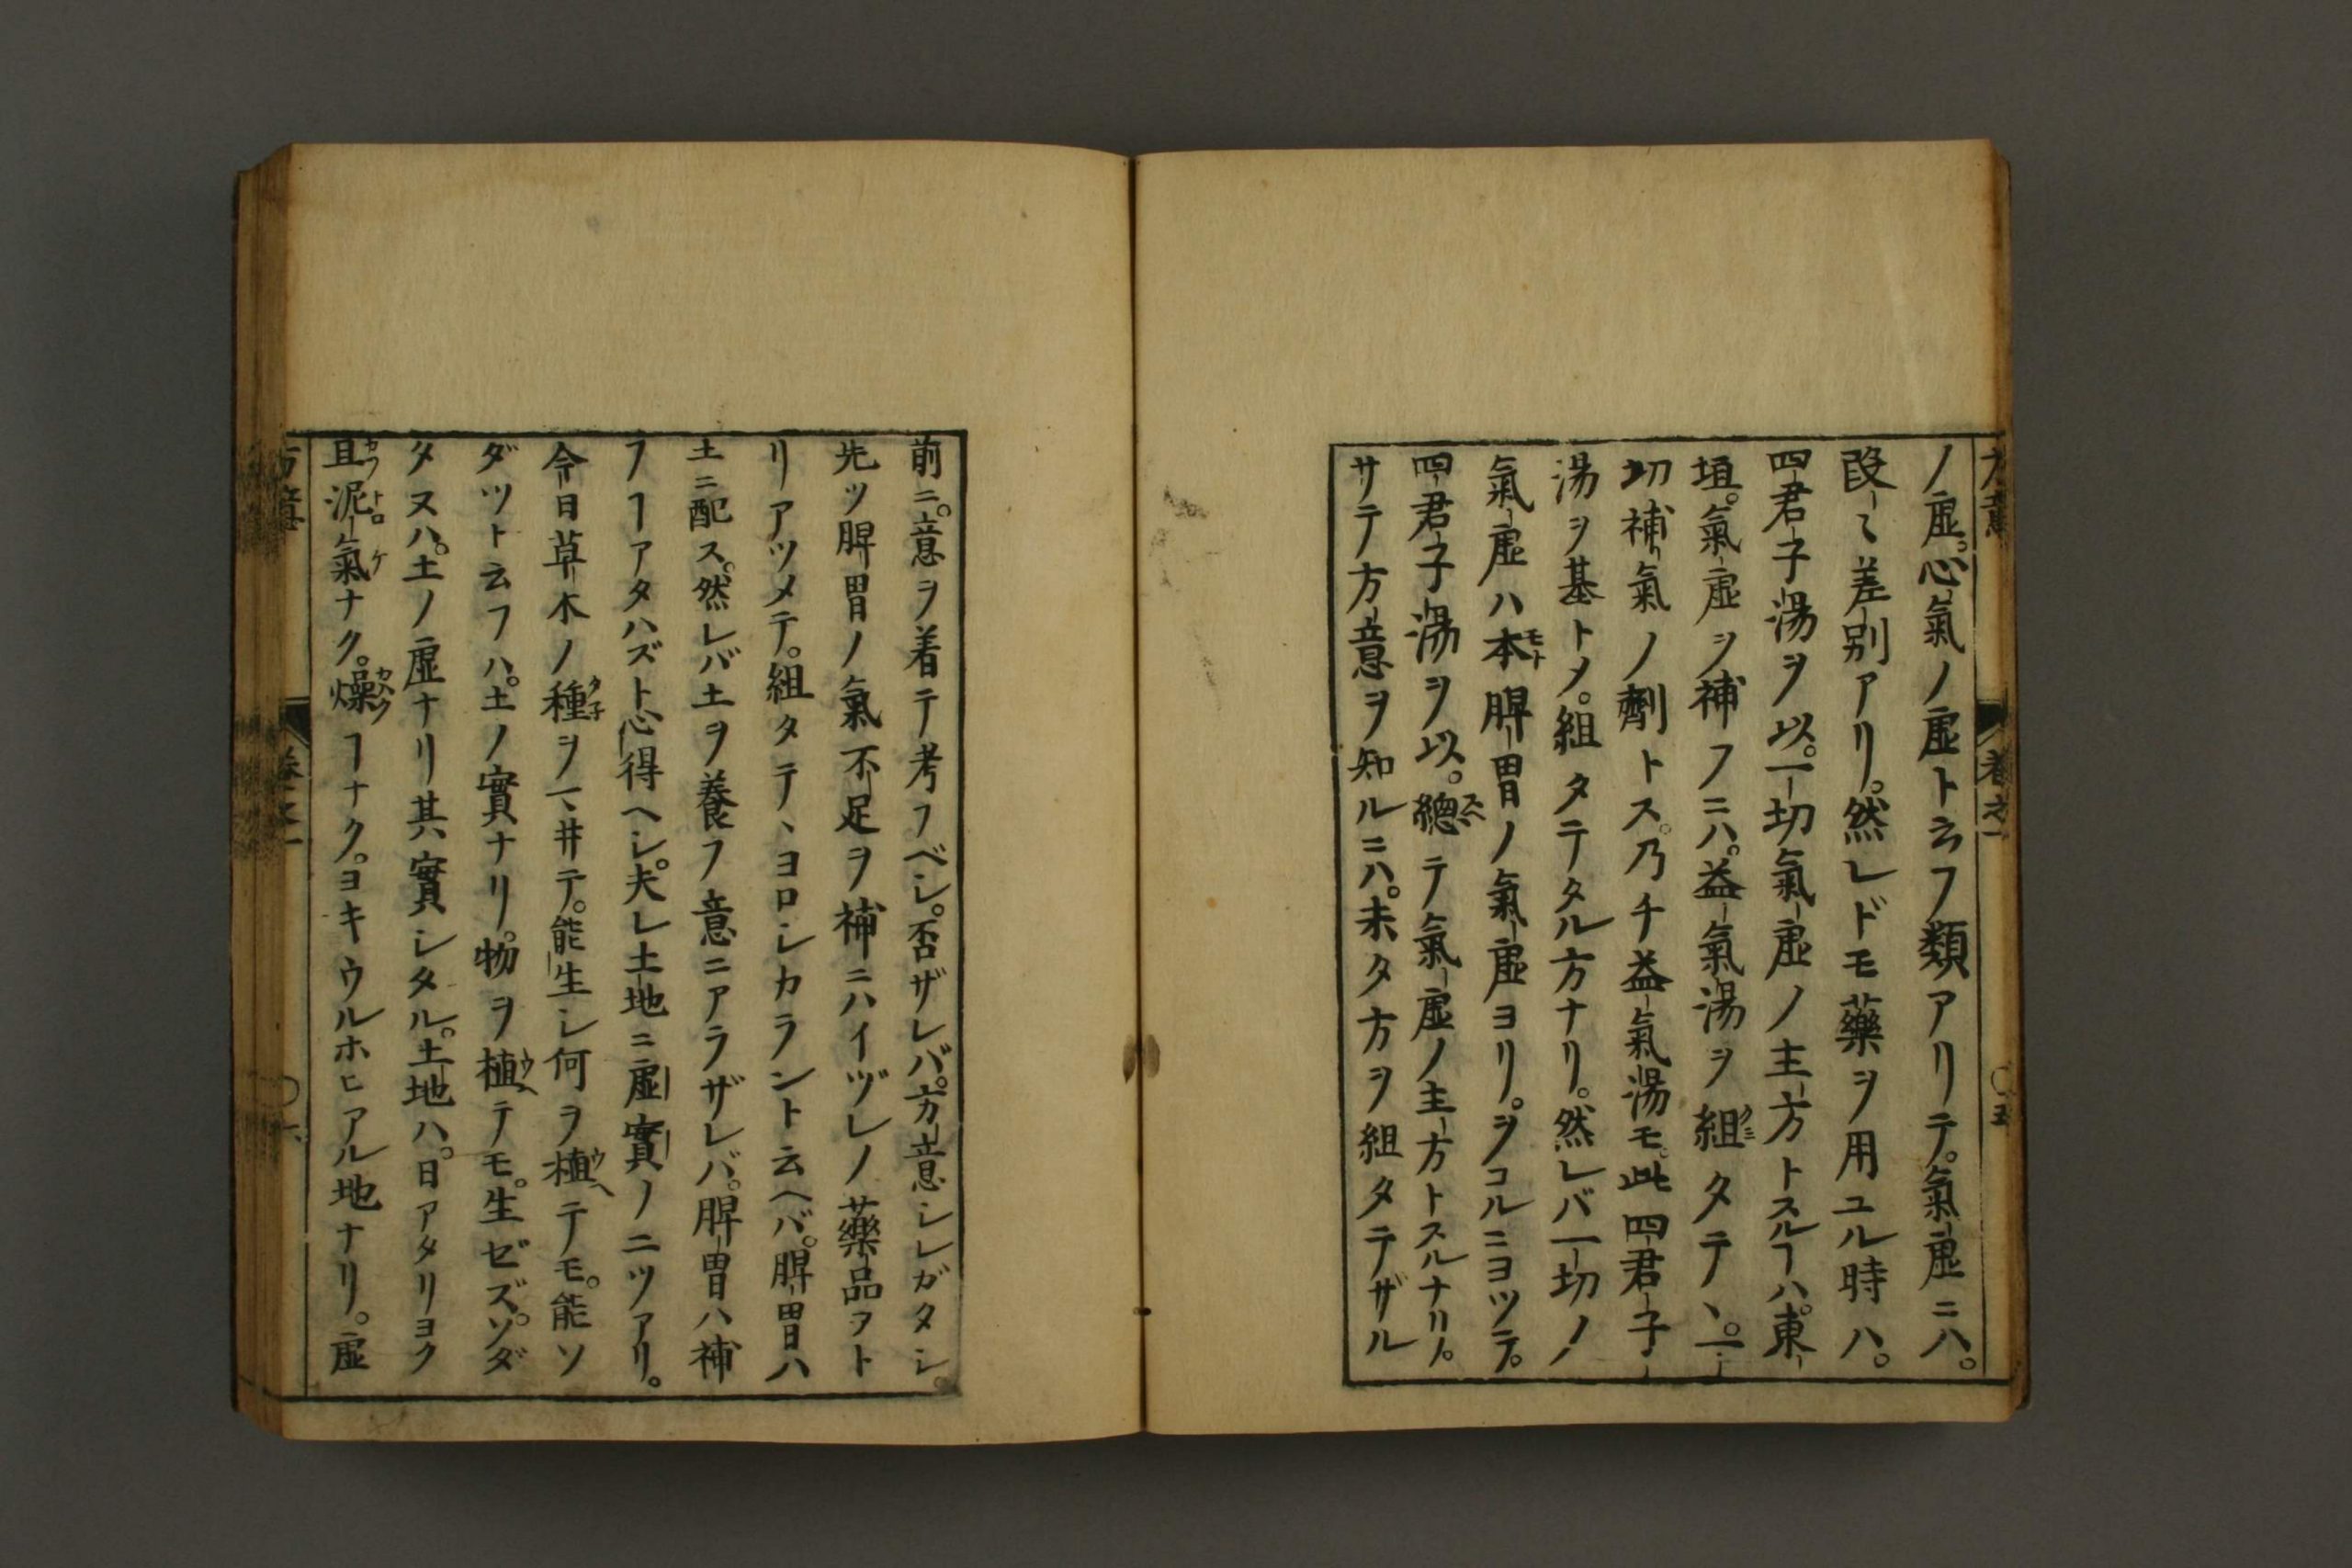 ノ虚。心氣ノ虚ト云フ類アリテ。氣虚ニハ。
段〻差別アリ。然レドモ藥ヲ用ユル時ハ。
四君子湯ヲ以。一切氣虚ノ主方トスルヿハ。東
垣。氣虚ヲ補フニハ。益氣湯ヲ組クミタテヽ。一
切補氣ノ劑トス。乃チ益氣湯モ。此四君子
湯ヲ基トメ。組タテタル方ナリ。然レバ一切ノ
氣虚ハ本モト脾胃ノ氣虚ヨリ。ヲコルニヨツテ。
四君子湯ヲ以。總スベテ氣虚ノ主方トスルナリ。
サテ方意ヲ知ルニハ。未タ方ヲ組タテザル
前ニ。意ヲ着テ考フベシ。否ザレバ。方意シレガタシ。
先ツ脾胃ノ氣不足ヲ補ニハイヅレノ藥品ヲト
リアツメテ。組タテヽヨロシカラント云ヘバ。脾胃ハ
土ニ配ス。然レバ土ヲ養フ意ニアラザレバ。脾胃ハ補
フヿアタハズト心得ヘシ。夫レ土地ニ虚實ノ二ツアリ。
今日草木ノ種タネヲマヽ井テ。能生シ何ヲ植ウヘテモ。能ソ
ダツト云フハ。土ノ實ナリ。物ヲ植ウヘテモ。生ゼズ。ソダ
タヌハ。土ノ虚ナリ其實シタル。土地ハ。日アタリヨク
且カツ泥トロ氣ケナク。燥カハクヿナク。ヨキウルホヒアル地ナリ。虚
方意
卷之一
〇五